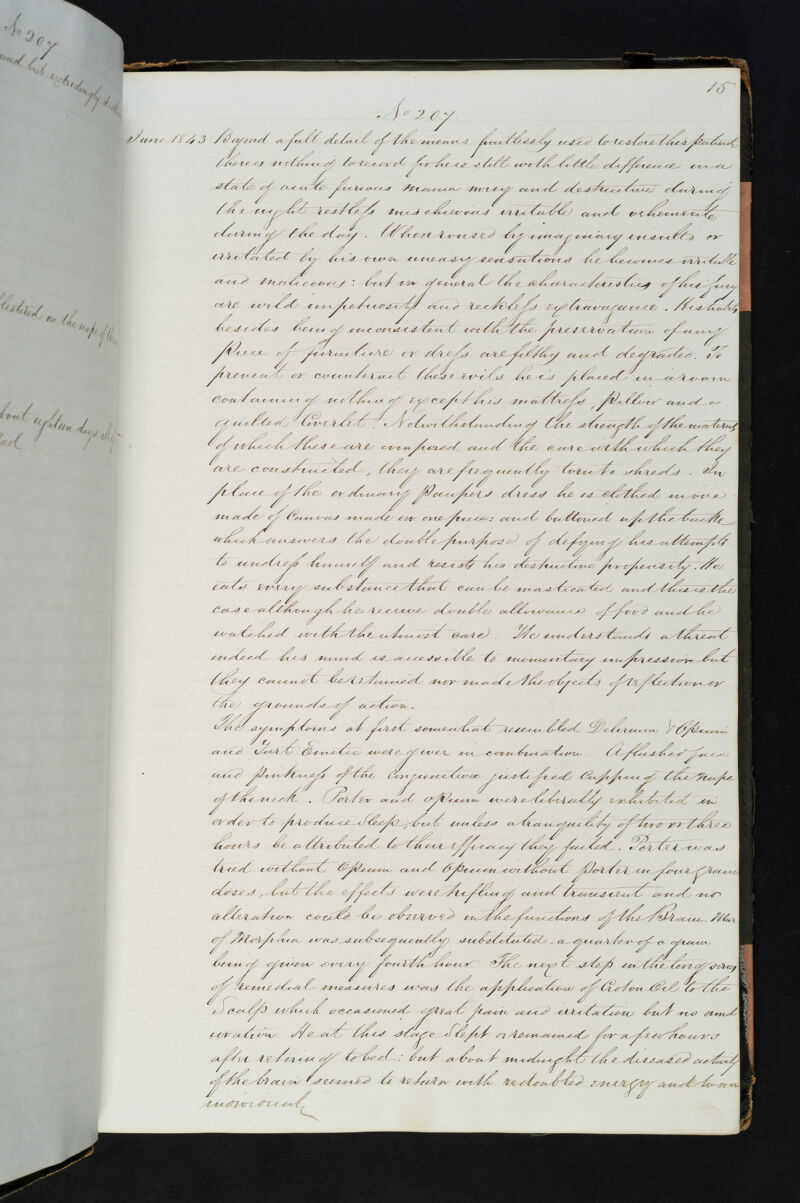 No 207
und but exceedingly
blistered on the nape of the
about eighteen days
15
No 207.
June 1843 Beyond a full detail of the means fruitlessly used to restore this patient
there is nothing to record for he is still with little difference in a
state of acute furious mania noisy and destructive during
the night restless mischievous irritable and vehement
during the day. When roused by imaginary insults or
irritated by his own uneasy sensations he becomes irritable
and malicious: but in general the characteristics of his fury
are wild impetuosity and reckless extravagance. His habits
besides being inconsistent with the preservation of any
piece of furniture or dress are filthy and degraded. To
prevent or counteract these evils he is placed in a room
containing nothing except his mattress, pillow and a
quilted Coverlet. Notwithstanding the strength of the materials
of which these are composed and the care with which they
are constructed, they are frequently torn to shreds. In
place of the ordinary Paupers dress he is clothed in one
made of Canvas made in one piece: and buttoned up the back
which answers the double purpose of defying his attempts
to undress himself and resists his destructive propensity. He
eats every substance that can be masticated and this is the
case although he receive double allowance of food and be
watched with the utmost care. He understands a threat
indeed his mind is accessible to momentary impression but
they cannot be retained nor made the objects of reflection or
the grounds of action.
The symptoms at first somewhat resembled Delirium & Opium
and Tart Emetic were given in combination. A flushed face
and pinkness of the conjunctiva justified Cupping the nape
of the neck. Porter and opium were liberally exhibited in
order to produce sleep, but unless a tranquility of two or three
hours be attributed to their efficacy they failed. Porter was
tried without Opium and Opium without Porter in four grain
doses, but the effects were trifling and transient and no
alteration could be observed in the functions of the Brain. Mur
of Morphia was subsequently substituted a quarter of a grain
being given every fourth hour The next step in the long series
of remedial measures was the application of Croton Oil to the
Scalp which occasioned great pain and irritation but no amel
ioration He at this stage slept or remained for a few hours
after retiring to bed: but about midnight the diseased activity
of the brain seemed to return with redoubled energy and to an